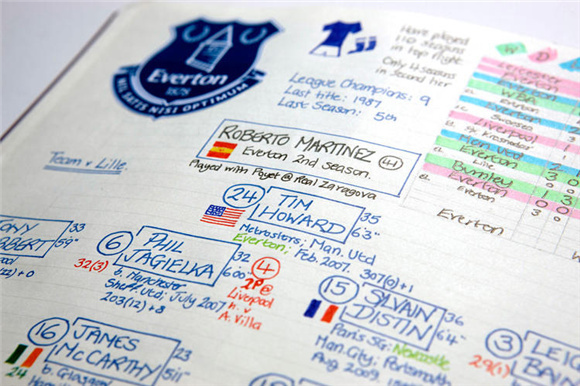 Everton
1878
NIL SATIS NISI OPTIMUM
Have played
110 seasons
in top flight
Only 4 seasons
in Second tier
League Champions: 9
Last title: 1987
Last Season: 5th
ROBERTO MARTINEZ 41
Everton 2nd Season.
Played with Poyet @ Real Zaragova
Team v. Lille.
24 TIM
HOWARD
35
6'3"
Metrostars; Man. Utd
Everton; Feb. 2007. 307(0)+1
33
5'9"
(2)+0
6 PHIL
JAGIELKA
32
6'00"
32(3)
b. Manchester
Sheff. Utd; July 2007
203(12)+8
4
2P @
Liverpool
h v
A. Villa
15 SYLVAIN
DISTIN
36
6'4"
Paris SG; Newcastle
Man. City; Portsmouth
Aug 2009
3 LEIG
BAI
29(1)
16 JAMES
McCARTHY
23
5'11"
b. Glasgow
Leicester
Everton
WBA
Everton
Swansea
Liverpool
Krasnodar
Man Utd
Everton
Burnley
Everton
Everton